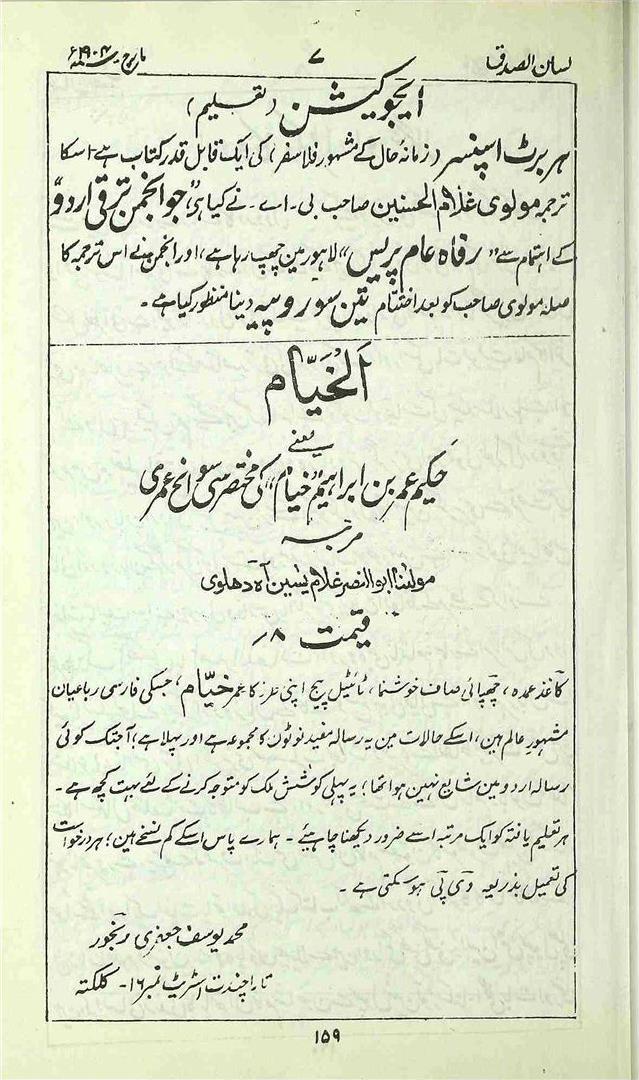 لسان الصدق ۷ مارچ سنہ ۱۹۰۴ء
ایجوکیشن (تعلیم)
ہربرٹ اسپنسر (زمانۂ حال کے مشہور فلاسفر) کی ایک قابل قدر کتاب ہے۔ اسکا
ترجمہ مولوی غلام الحسنین صاحب بی۔ اے۔ نے کیا ہی، جو انجمن ترقی اردو
کے اہتمام سے "رفاہ عام پریس" لاہور مین چھپ رہا ہے، اور انجمن نے اس ترجمہ کا
صلہ مولوی صاحب کو بعد اختتام تین سو روپیہ دینا منظور کیا ہے۔
الخیّام
یعنے
حکیم عمر بن ابراہیم "خیام" کی مختصر سی سوانح عمری
مرتبہ
مولٰنا ابو النصر غلام یٰسین آہ دھلوی
قیمت ۸؍
کاغذ عمدہ، چھپائی صاف خوشنما، ٹائیٹل پیج اپنی طرز کا عمر خیّام، جسکی فارسی رباعیان
مشہور عالم ہین، اسکے حالات مین یہ رسالہ مفید نوٹون کا مجموعہ ہے اور پہلا ہے؛ آجتک کوئی
رسالہ اردو مین شایع نہین ہوا تھا؛ یہ پہلی کوشش ملک کو متوجہ کرنے کے لئے بہت کچھ ہے۔
ہر تعلیم یافتہ کو ایک مرتبہ اسے ضرور دیکھنا چاہیئے۔ ہمارے پاس اسکے کم نسخے ہین؛ ہر درخواست
کی تعمیل بذریعہ وی پی ہو سکتی ہے۔
محمد یوسف جعفری رنجور
تاراچندت اسٹریٹ نمبر ۱۶۔ کلکتہ
۱۵۹